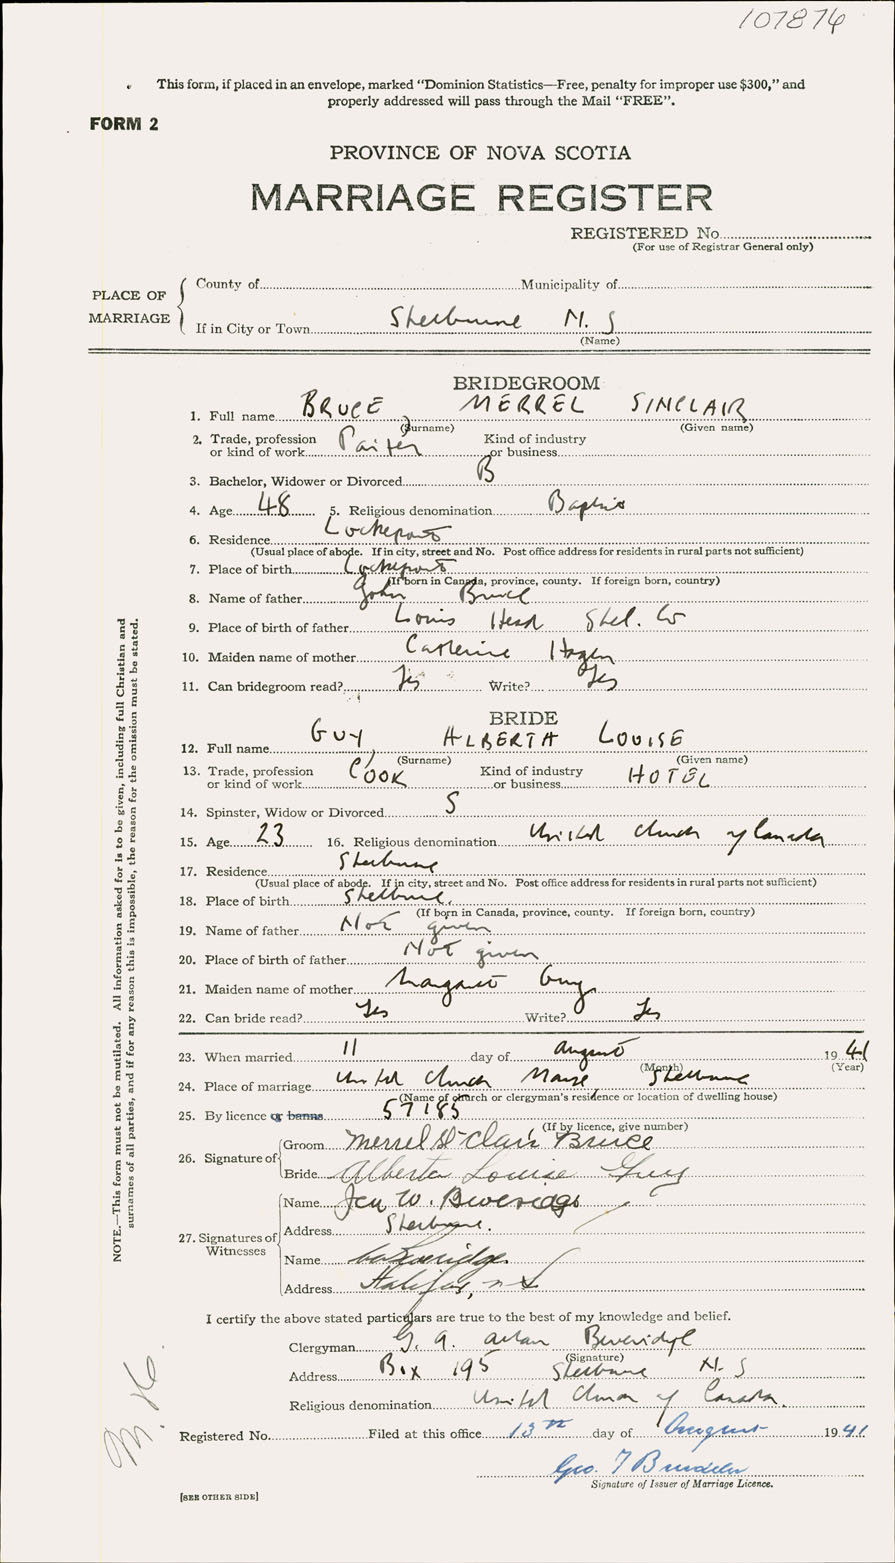 107874
This form, if placed in an envelope, marked "Dominion Statistics—Free, penalty for improper use $300," and
properly addressed will pass through the Mail "FREE".
FORM 2
PROVINCE OF NOVA SCOTIA
MARRIAGE REGISTER
REGISTERED No.
(For use of Registrar General only)
PLACE OF MARRIAGE
County of Municipality of
If in City or Town Shelburne N. S
(Name)
BRIDEGROOM
1. Full name BRUCE MERREL SINCLAIR
(Surname) (Given name)
2. Trade, profession or kind of work Kind of industry or business
3. Bachelor, Widower or Divorced B
4. Age 48 5. Religious denomination Baptist
6. Residence Lockeport
(Usual place of abode. If in city, street and No. Post office address for residents in rural parts not sufficient)
7. Place of birth Lockeport
(If born in Canada, province, county. If foreign born, country)
8. Name of father John Bruce
9. Place of birth of father Louis Head Shel. Co
10. Maiden name of mother Catherine Hagen
11. Can bridegroom read? Yes Write? Yes
BRIDE
12. Full name GUY, ALBERTA LOUISE
(Surname) (Given name)
13. Trade, profession or kind of work COOK Kind of industry or business HOTEL
14. Spinster, Widow or Divorced S
15. Age 23 16. Religious denomination United Church of Canada
17. Residence Shelburne
(Usual place of abode. If in city, street and No. Post office address for residents in rural parts not sufficient)
18. Place of birth Shelburne.
(If born in Canada, province, county. If foreign born, country)
19. Name of father Not given
20. Place of birth of father Not given
21. Maiden name of mother Margaret Guy
22. Can bride read? Yes Write? Yes
23. When married 11 day of August 1941
(Month) (Year)
24. Place of marriage United Church Manse, Shelburne
(Name of church or clergyman's residence or location of dwelling house)
25. By licence or banns 57185
(If by licence, give number)
26. Signature of
Groom Merrel St Clair Bruce
Bride Alberta Louise Guy
27. Signatures of Witnesses
Name W. Beveridge
Address Shelburne.
Name Beveridge
Address Halifax, n S
I certify the above stated particulars are true to the best of my knowledge and belief.
Clergyman G. A. Beveridge
(Signature)
Address Box 195 Shelburne N. S
Religious denomination United Church of Canada.
Registered No. Filed at this office 13th day of August 1941
Geo. T
Signature of Issuer of Marriage Licence.
[SEE OTHER SIDE]
NOTE.—This form must not be mutilated. All information asked for is to be given, including full Christian and
surnames of all parties, and if for any reason this is impossible, the reason for the omission must be stated.